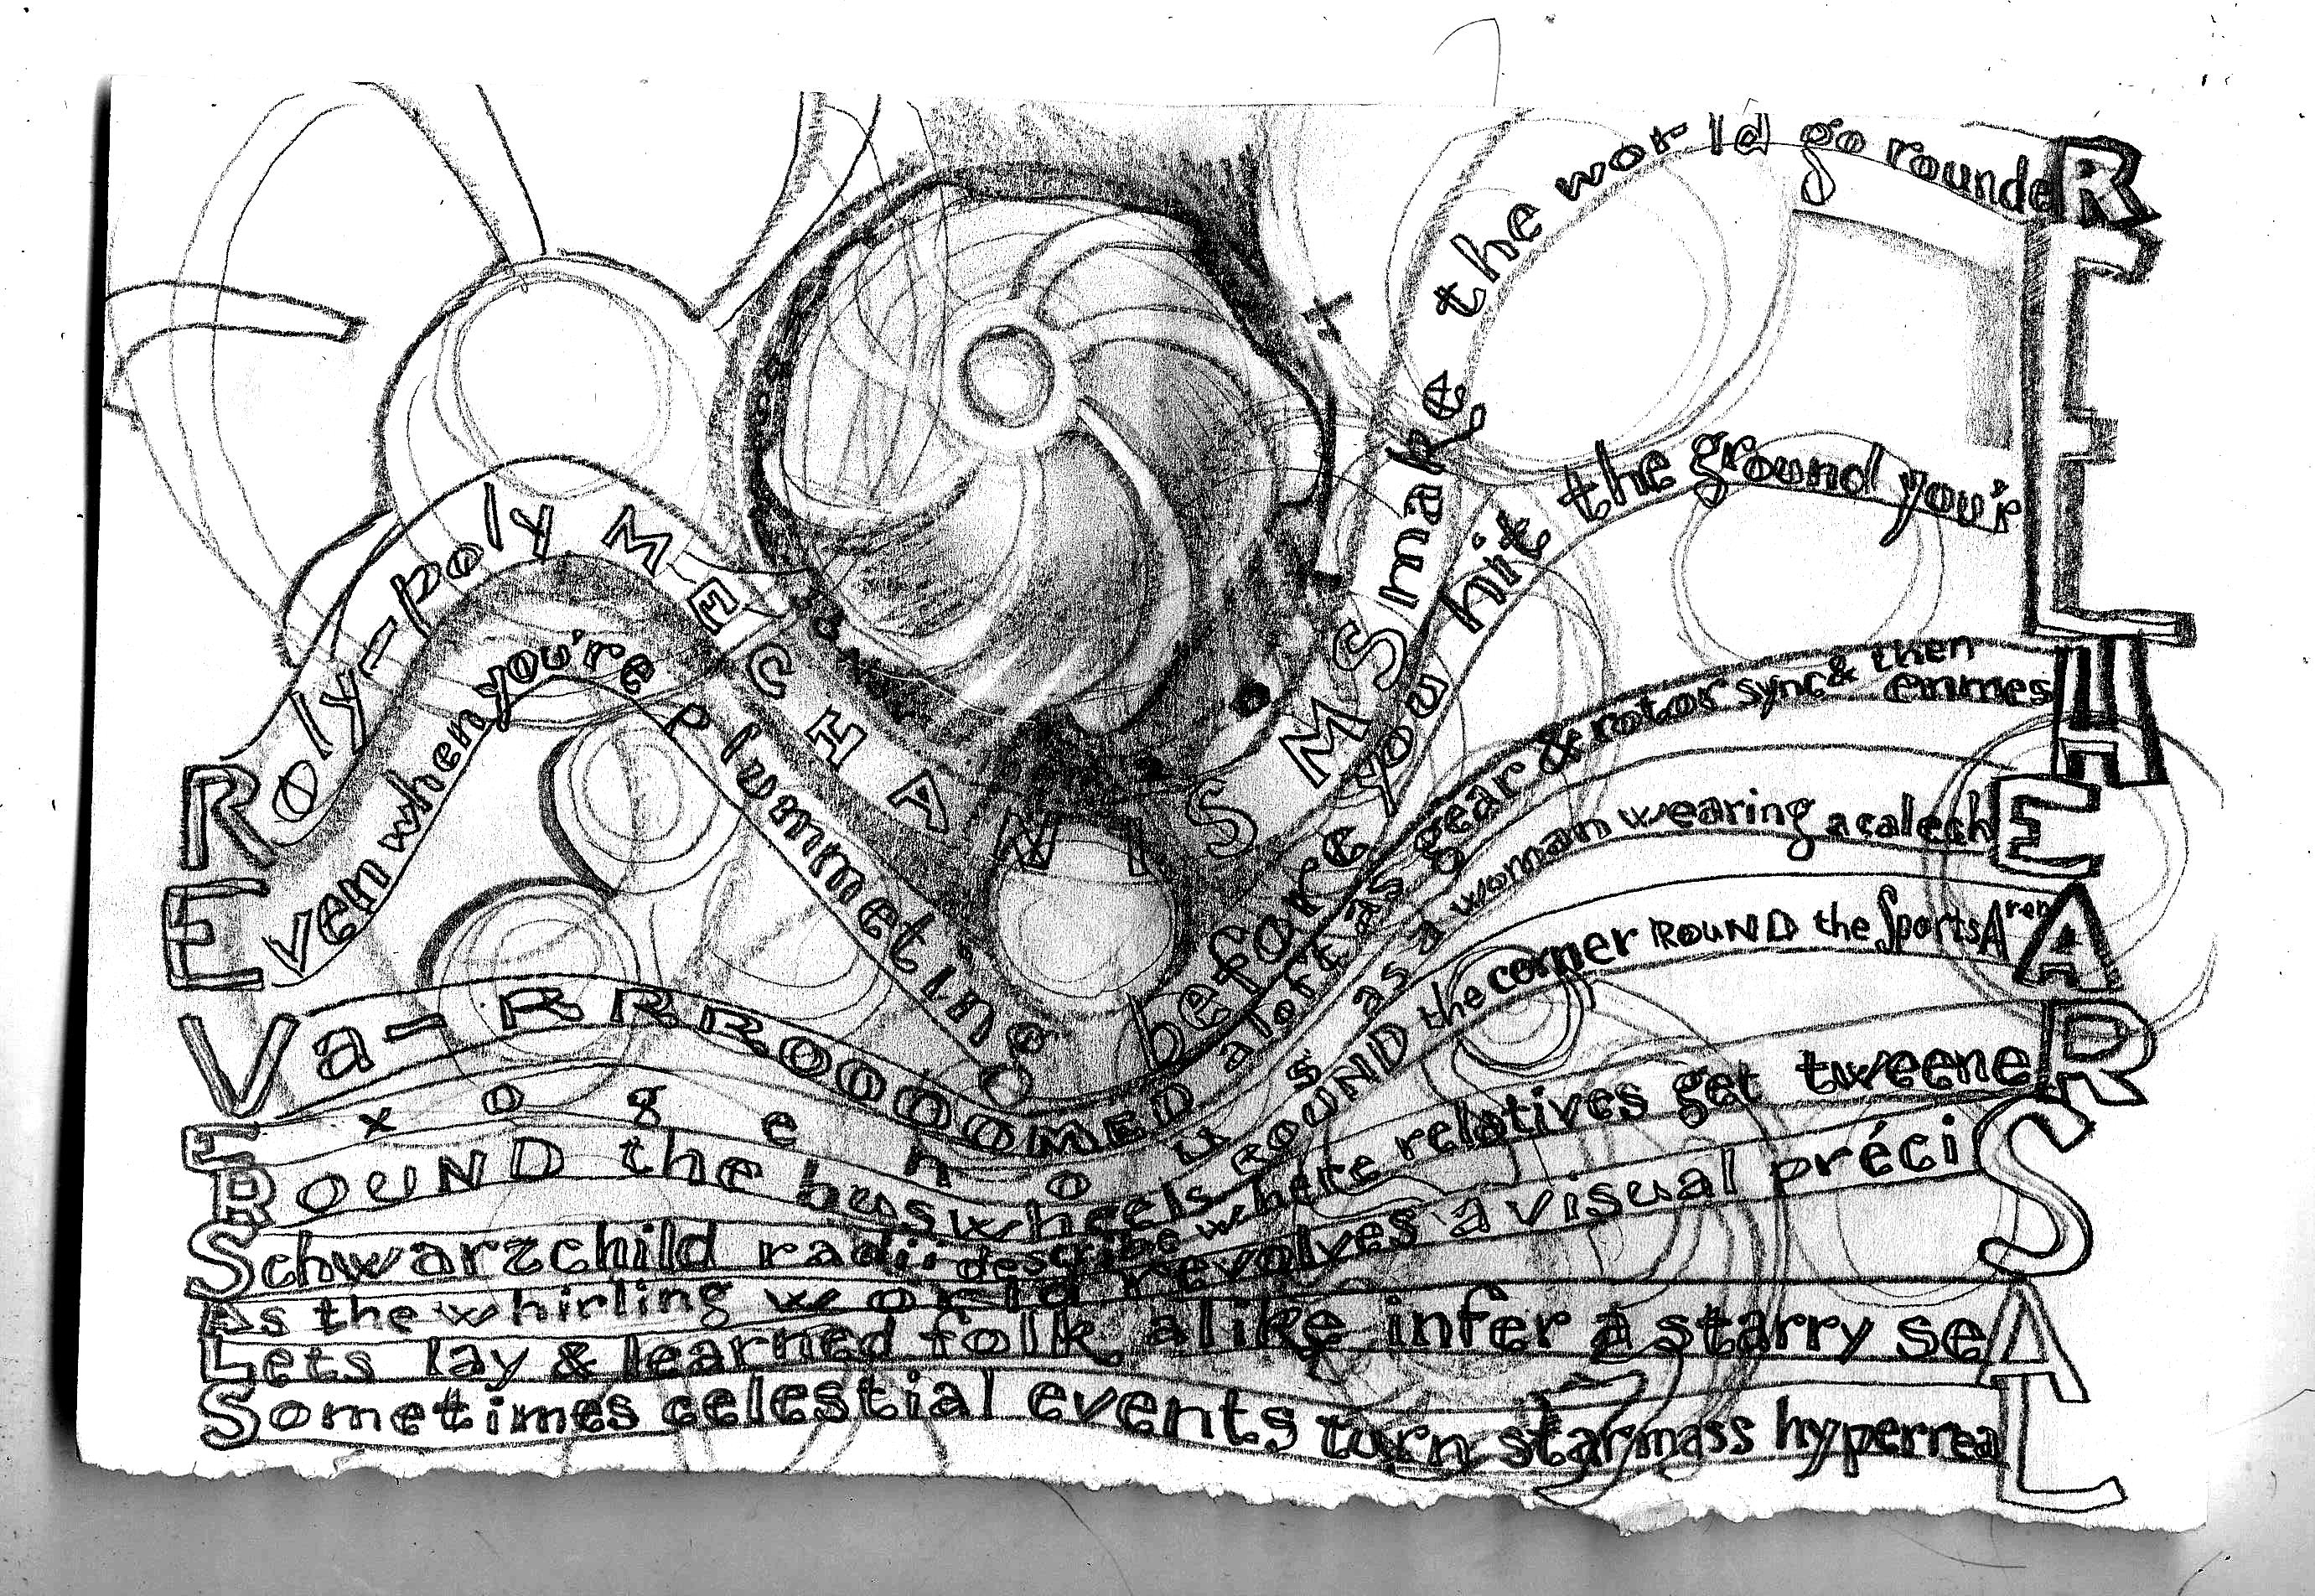 Roly-poly MECHANISMS make the world go roundeR
Even when you're plummeting before you hit the ground you'rE
Va-RRROOOOOMED aloft as gear & rotor sync & then emmesH
Exogenous as a woman wearing a calechE
ROUND the bus wheels ROUND the corner ROUND the SportsArenA
Schwarzchild radii describe where relatives get tweeneR
As the whirling world revolves a visual préciS
Lets lay & learned folk alike infer a starry seA
Sometimes celestial events turn starmass hyperreaL